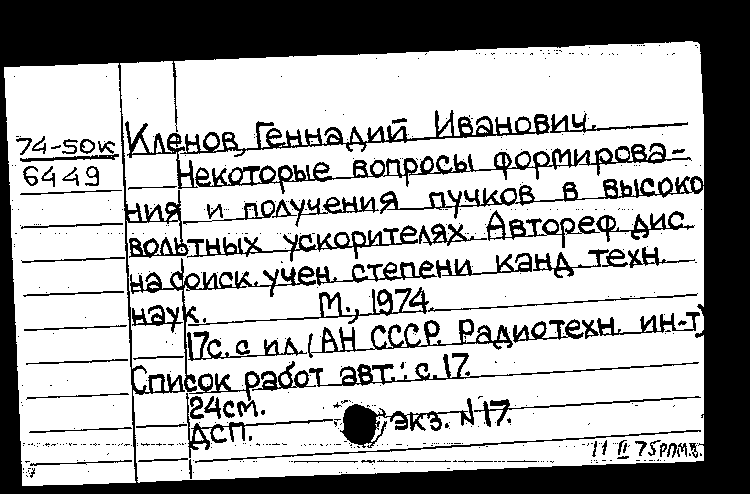 74-50к
6449
Кленов, Геннадий Иванович.
Некоторые вопросы формирова-
ния и получения пучков в высоко
вольтных ускорителях. Автореф дис.
на соиск. учен. степени канд. техн.
наук. М., 1974.
17с. с ил. (АН СССР. Радиотехн. ин-т)
Список работ авт.: с. 17.
24см.
ДСП. экз. N17.
11 II 75